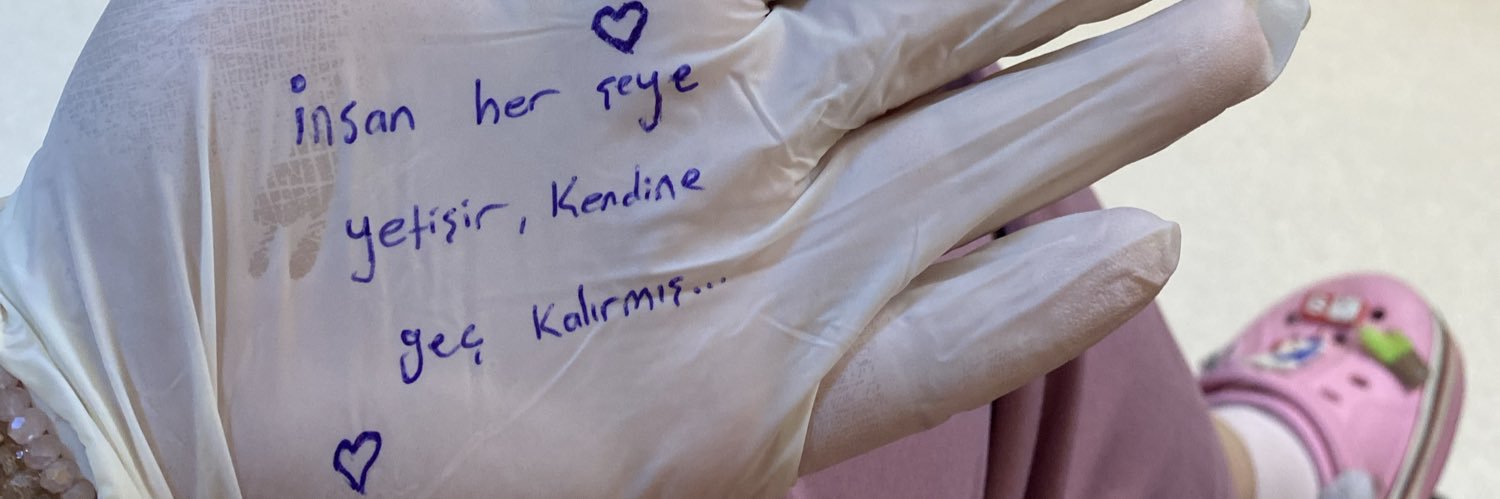 insan her şeye
yetişir, kendine
geç kalırmış...